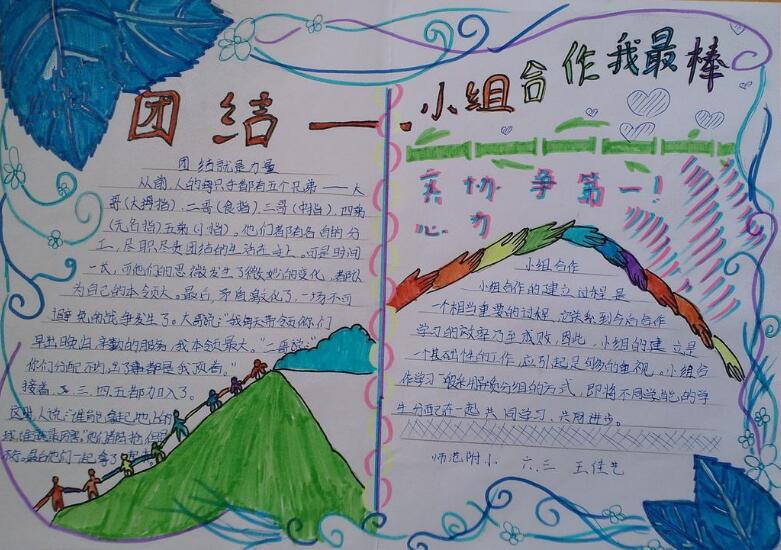 团结——小组合作我最棒
团结就是力量
从前,人的每只手都有五个兄弟——大
哥(大拇指).二哥(食指).三哥(中指).四弟
(无名指)五弟(小指)。他们都有各自的分
工,尽职尽责团结的生活在这上。可是时间
一长,而他们的思微发生了微妙的变化,都认
为自己的本领大。最后,矛盾激化了,一场不可
避免的战争发生了。大哥说:“我每天带领你们
早出晚归,辛勤的服务,我本领最大。”二哥说:“
你们分配不均,出了事都是我顶着。”
接着,三、四、五都加入了。
这时人说:“谁能拿起地上的
球,谁就最厉害。”他们都
最后他们一起拿了
齐心协力争第一!
小组合作
小组合作的建立过程是
一个相当重要的过程,它关系到今后合作
学习的效率乃至成败,因此,小组的建立是
一个基础性的工作,应引起足够的重视。小组合
作学习一般采用异质分组的方式,即将不同学能的学
生分配在一起,共同学习、共同进步。
师范附小 六.三 王佳艺